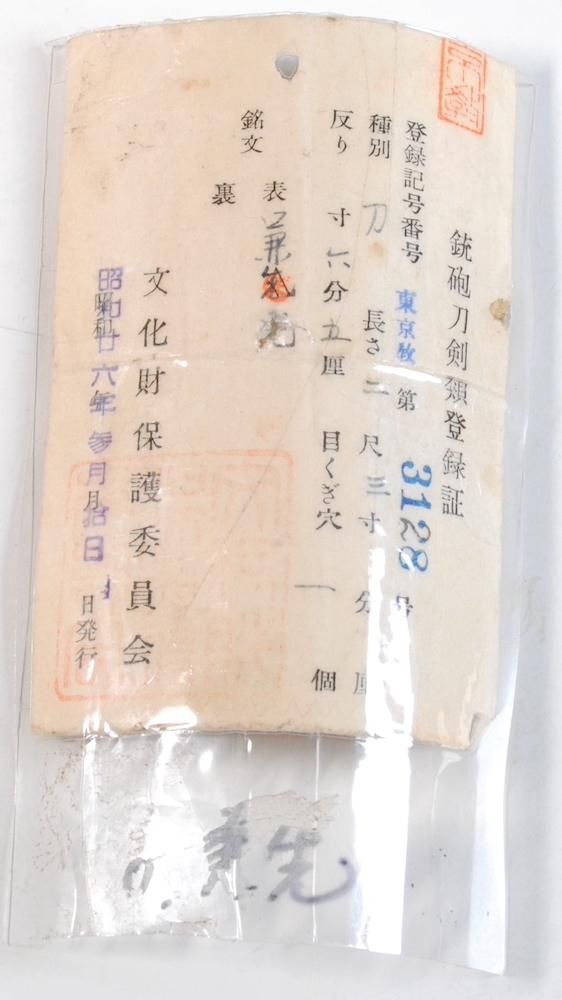 銃砲刀剣類登録証
登録記号番号 東京教 第 3128 号
種別 刀 長さ 二 尺 三 寸 分 厘
反り 寸 六 分 五 厘 目くぎ穴 一 個
銘文 表
裏
文化財保護委員会
昭和廿六年参月拾日
昭和 年 月 日発行
兼先